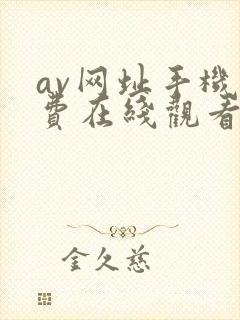 av网址手機
費在綫觀看
金久慈